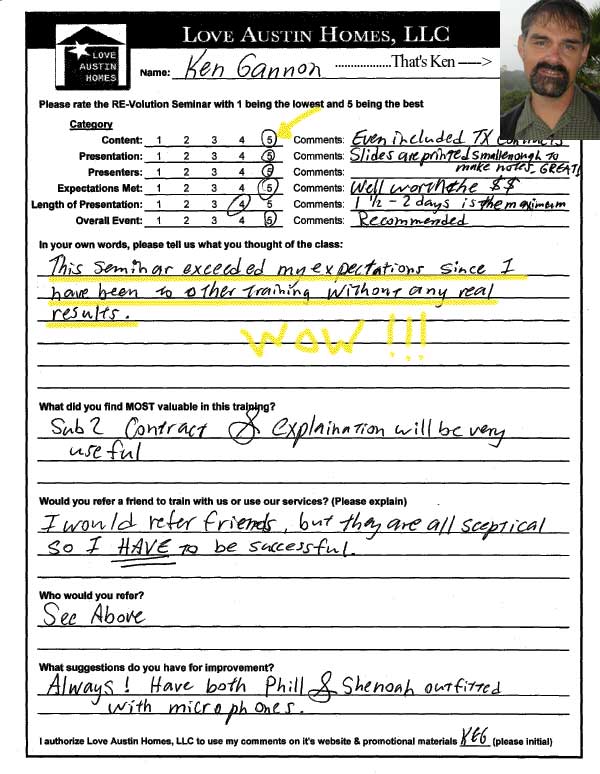 LOVE AUSTIN HOMES, LLC
LOVE
AUSTIN
HOMES
Name: Ken Gannon ..................That's Ken ----->
Please rate the RE-Volution Seminar with 1 being the lowest and 5 being the best
Category
Content: 1 2 3 4 5 Comments: Even included TX contracts
Presentation: 1 2 3 4 5 Comments: Slides are printed small enough to
make notes, GREAT!
Presenters: 1 2 3 4 5 Comments:
Expectations Met: 1 2 3 4 5 Comments: Well worth the $$
Length of Presentation: 1 2 3 4 5 Comments: 1 1/2 - 2 days is the maximum
Overall Event: 1 2 3 4 5 Comments: Recommended
In your own words, please tell us what you thought of the class:
This seminar exceeded my expectations since I
have been to other training without any real
results.
WOW!!!
What did you find MOST valuable in this training?
Sub2 Contract & explaination will be very
useful
Would you refer a friend to train with us or use our services? (Please explain)
I would refer friends, but they are all sceptical
so I HAVE to be successful.
Who would you refer?
See Above
What suggestions do you have for improvement?
Always! Have both Phill & Shenoah outfitted
with microphones.
I authorize Love Austin Homes, LLC to use my comments on it's website & promotional materials KEG (please initial)